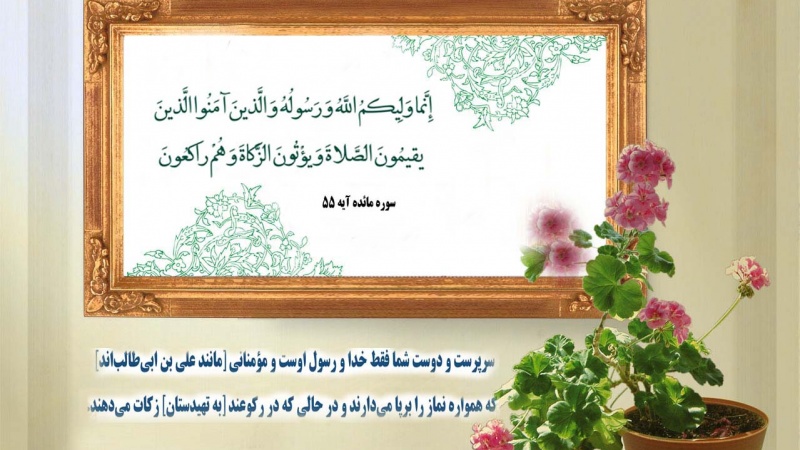 إِنَّمَا وَلِيُّكُمُ اللَّهُ وَرَسُولُهُ وَالَّذِينَ آمَنُوا الَّذِينَ
يُقِيمُونَ الصَّلَاةَ وَيُؤْتُونَ الزَّكَاةَ وَهُمْ رَاكِعُونَ
سوره مائده آیه ۵۵
سرپرست و دوست شما فقط خدا و رسول اوست و مؤمنانی [مانند علی بن ابی‌طالب‌اند]
که همواره نماز را برپا می‌دارند و در حالی که در رکوعند [به تهیدستان] زکات می‌دهند.